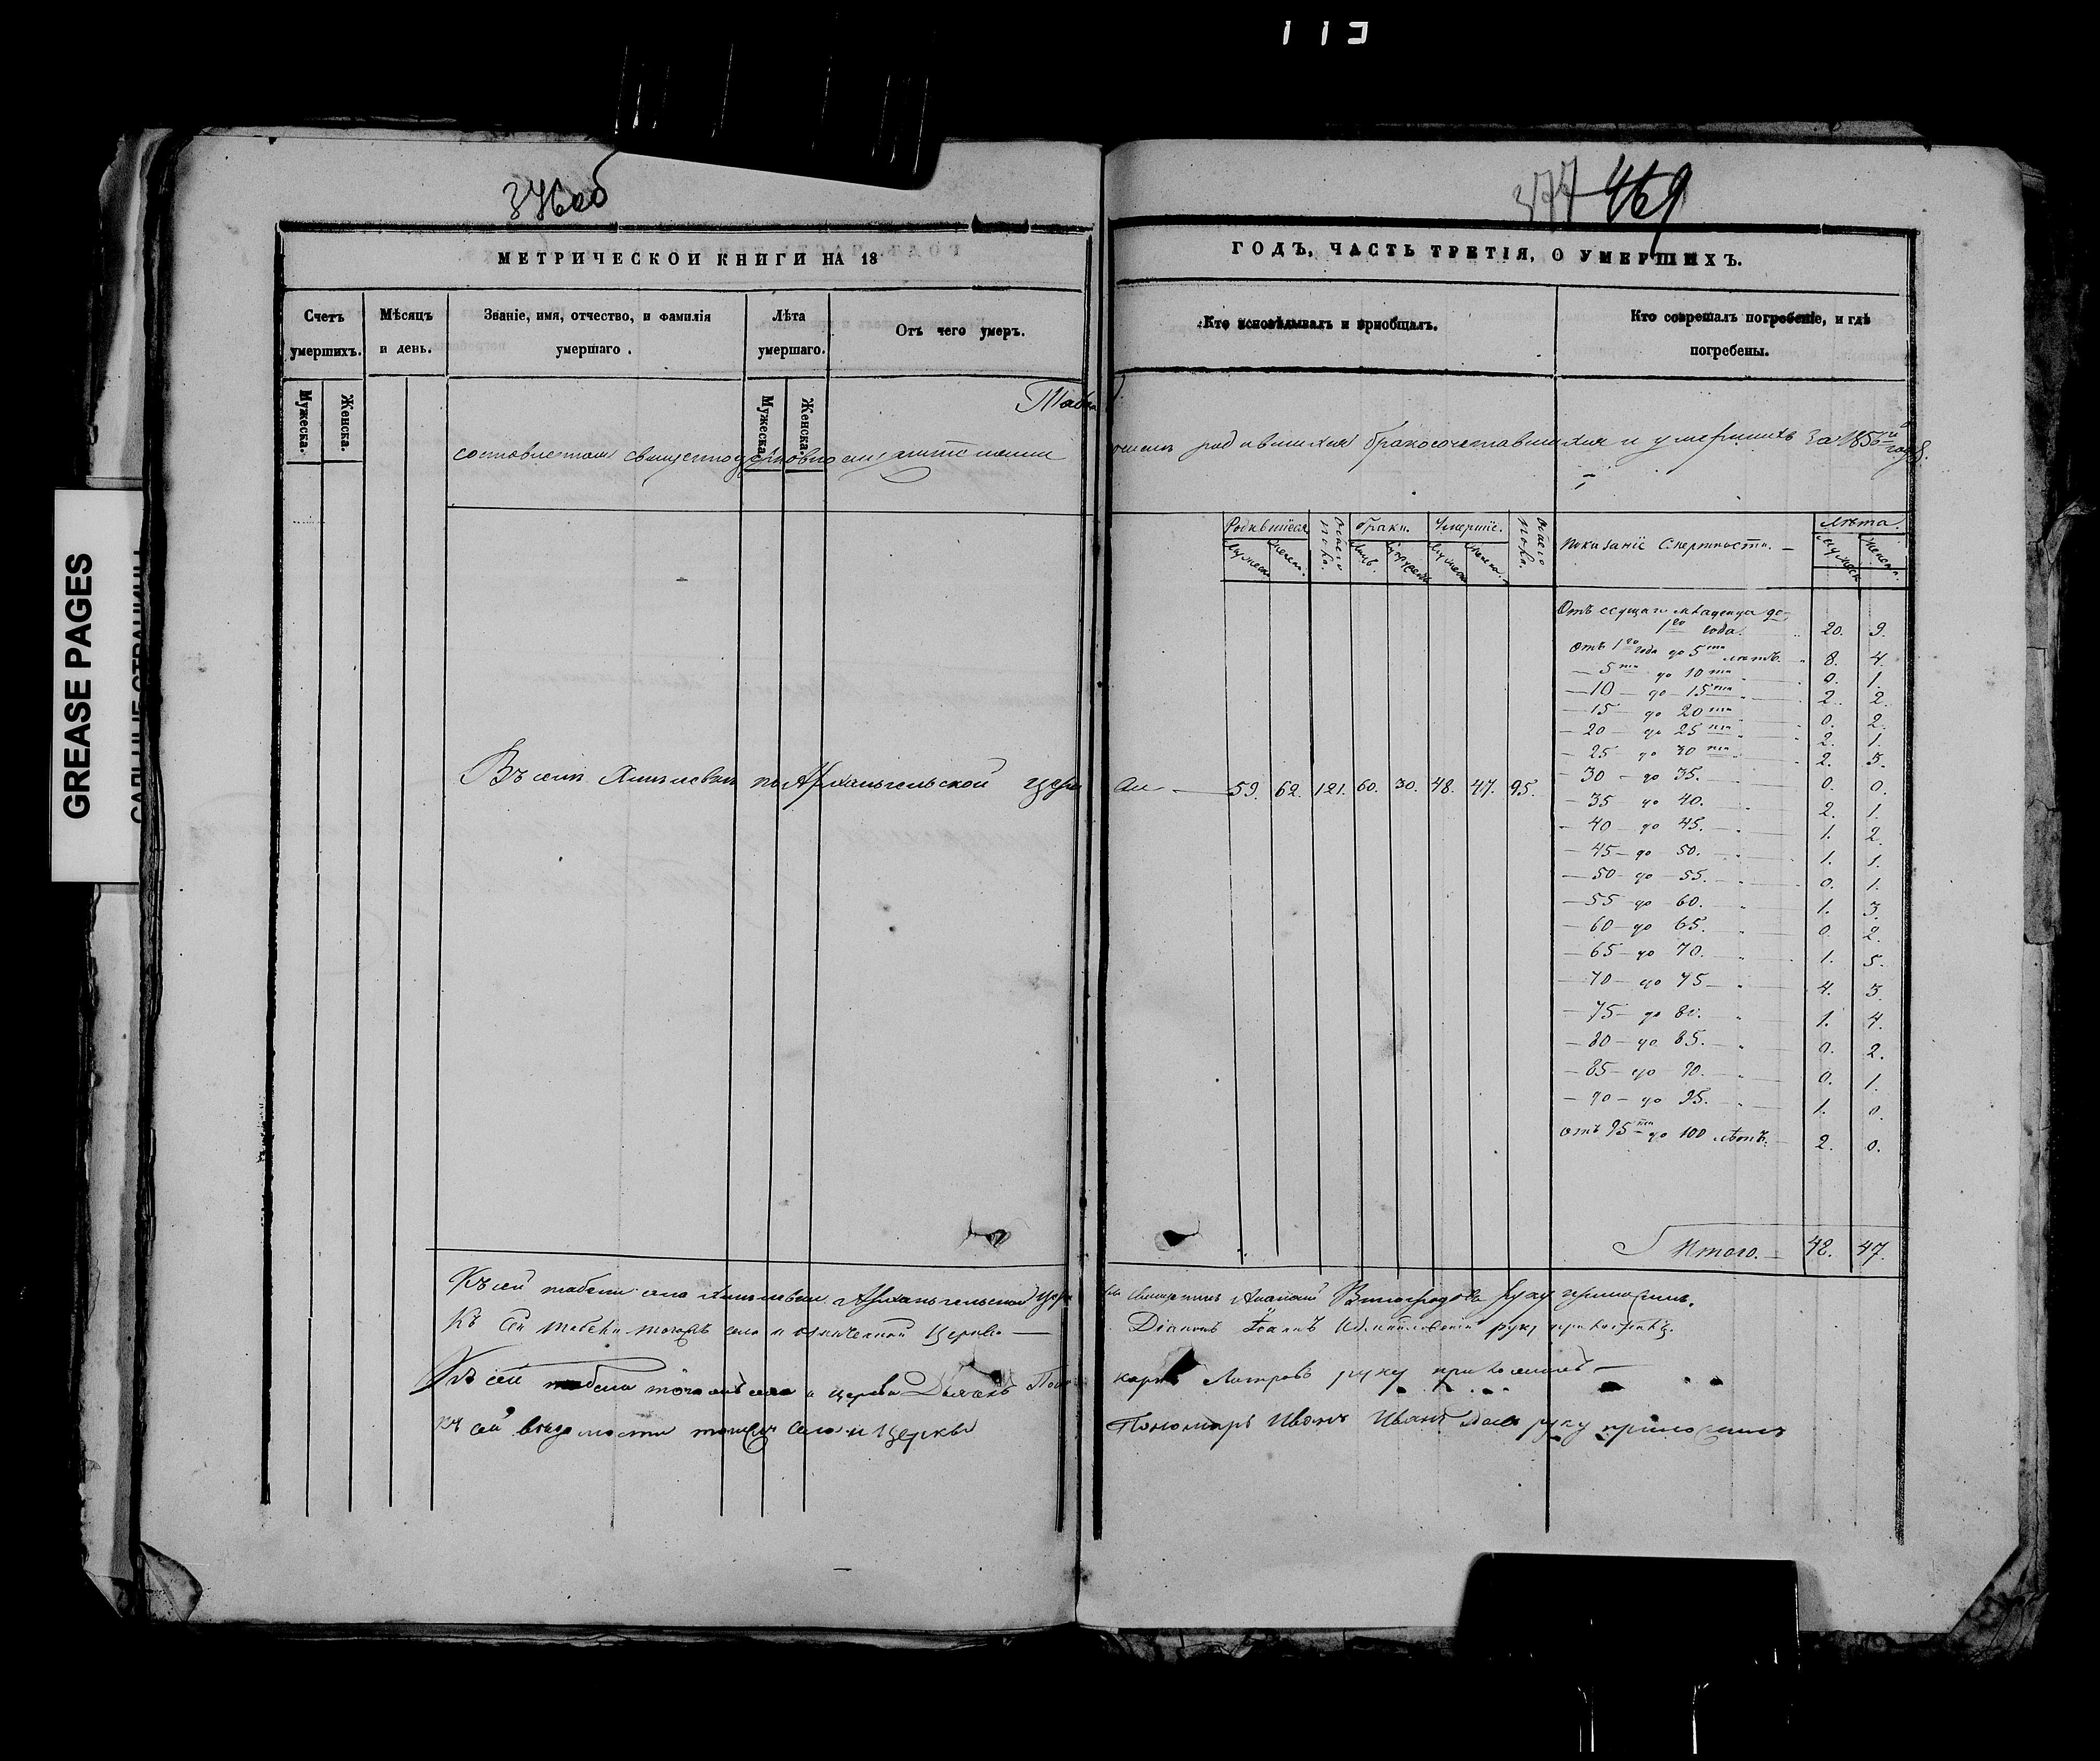 113
376об
377 469
GREASE PAGES
МЕТРИЧЕСКОЙ КНИГИ НА 18
ГОДЪ, ЧАСТЬ ТРЕТІЯ, О УМЕРШИХЪ.
Счетъ умершихъ.
Мѣсяцъ и день.
Званіе, имя, отчество, и фамилія умершаго.
Лѣта умершаго.
Отъ чего умеръ.
Кто исповѣдывалъ и пріобщалъ.
Кто совершалъ погребеніе, и гдѣ погребены.
Мужеска.
Женска.
Мужеска.
Женска.
родившихся бракосочетавшихся и умершихъ за 1856й годъ.
Родившіеся
всего
Браки.
Умершіе.
всего
Показаніе Смертности.
Лѣта.
Отъ сущаго младенца до
1го года. 20. 9.
Отъ 1го года до 5ти лѣтъ. 8. 4.
— 5ти до 10ти 0. 1.
— 10 — до 15ти 2. 2.
— 15 — до 20ти 0. 2.
— 20 — до 25ти 2. 1.
— 25 — до 30ти 2. 3.
— 30 — до 35. 0. 0.
— 35 до 40. 2. 1.
— 40 — до 45. 1. 2.
— 45 — до 50. 1. 1.
— 50 — до 55. 0. 1.
— 55 — до 60. 1. 3.
— 60 — до 65. 0. 2.
— 65 — до 70. 1. 5.
— 70 — до 75 4. 3.
— 75 — до 80. 1. 4.
— 80 — до 85. 0. 2.
— 85 — до 90. 0. 1.
— 90 — до 95. 1. 0.
отъ 95ти до 100 лѣтъ. 2. 0.
Итого. — 48. 47.
Въ селѣ по Архангельской церкви — 59. 62. 121. 60. 30. 48. 47. 95.
Къ сей табели села Архангельской церкви священникъ Виноградовъ руку приложилъ.
Къ сей табели тогожъ села и церкви — Діаконъ руку приложилъ.
Къ сей табели тогожъ села и церкви Дьячекъ руку приложилъ —
къ сей вѣдомости тогожъ села и церкви Пономарь Иванъ руку приложилъ